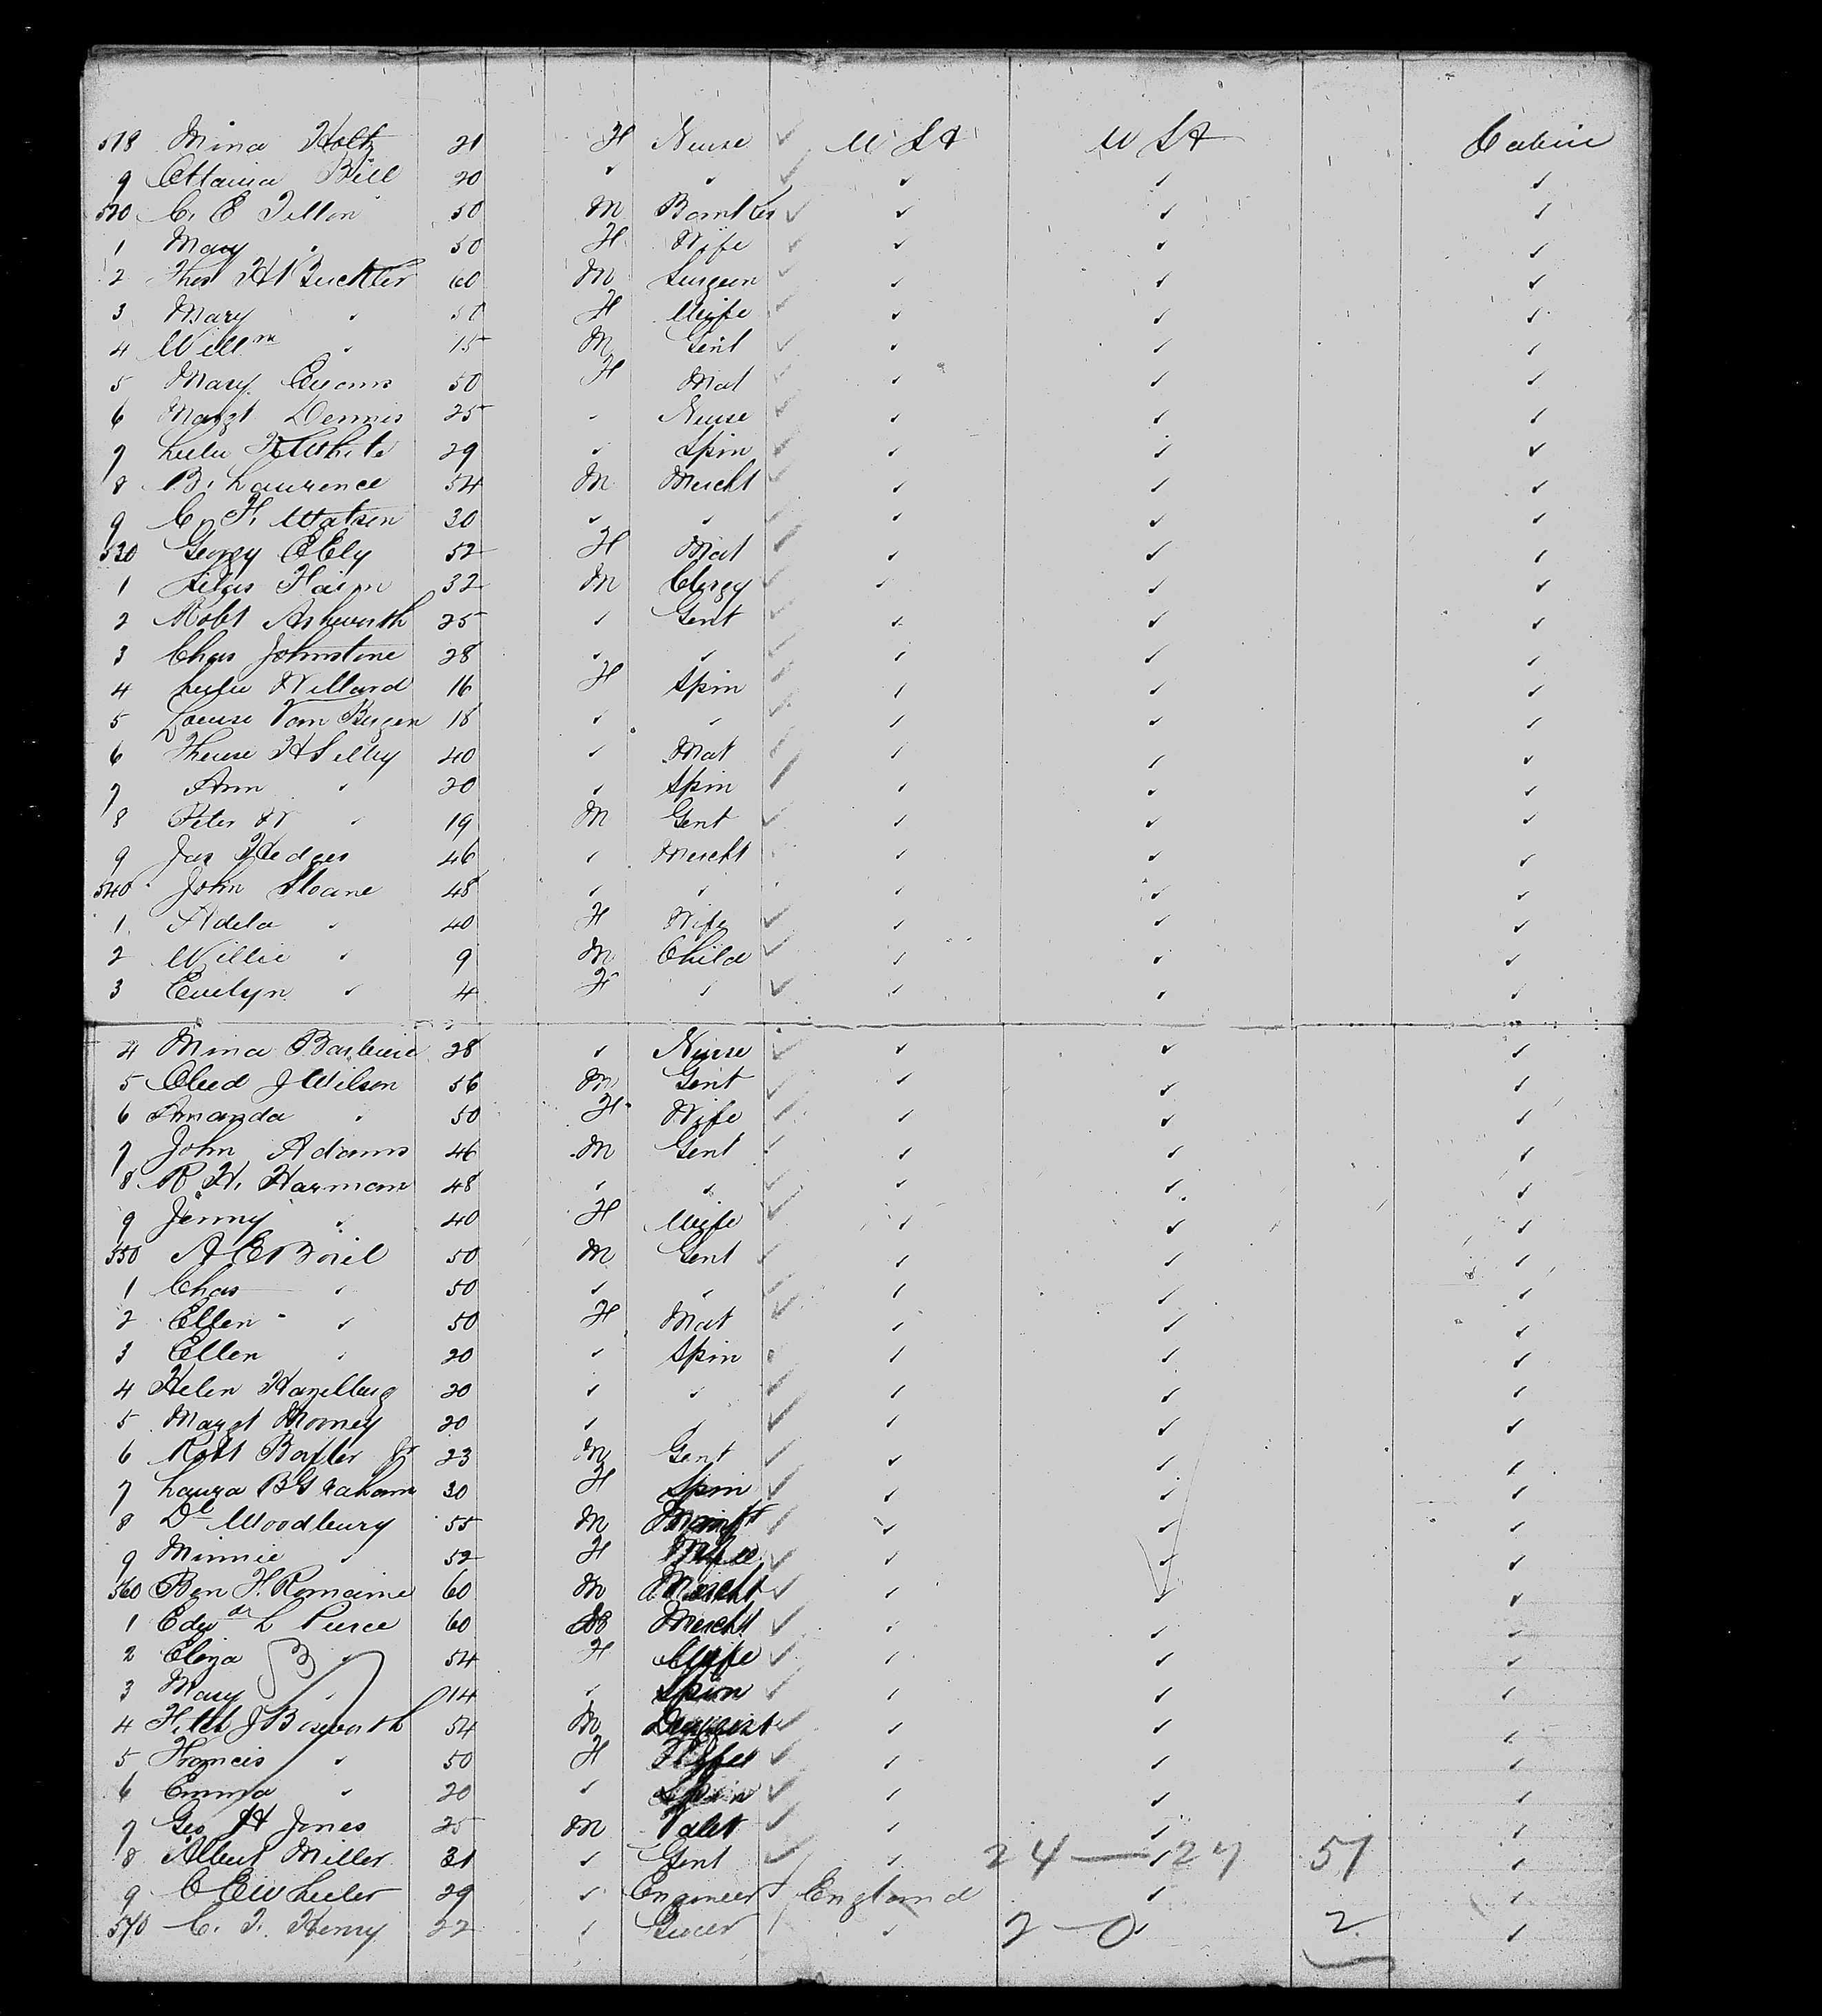 518 Mina Holtz 21 F Nurse U St U St Cabin
9 Bill 20 " "
520 C. E 50 M
1 Mary " 50 F Wife
2 Thos H Buckler 60 M Surgeon
3 Mary " F Wife
4 Willm " 15 M Gent
5 Mary 50 F Mat
6 Margt Dennis 25 " Nurse
7 Lulu White 29 " Spin
8 B. Laurence 54 M Mercht
9 C. F. Watson 30 " "
530 Georgy 52 F Mat
1 32 M Clergy
2 Robt Ashworth 25 " Gent
3 Chas Johnstone 28 " "
4 Lulu Willard 16 F Spin
5 Louise Van Bergen 18 " "
6 40 " Mat
7 Ann " 20 " Spin
8 Peter W " 19 M Gent
9 Jas Hedges 46 " Mercht
540 John Sloane 48 " "
1 Adela " 40 F Wife
2 Willie " 9 M Child
3 Evelyn " 4 F "
4 Mina 28 " Nurse
5 J Wilson 56 M Gent
6 Amanda " 50 F Wife
7 John Adams 46 M Gent
8 R. H. Harman 48 " "
9 Jenny " 40 F Wife
550 A E Borie 50 M Gent
1 Chas " 50 " "
2 Ellen " 50 F Mat
3 Ellen " 20 " Spin
4 Helen 20 " "
5 Margt Mooney 20 " "
6 Robt Jr 23 M Gent
7 Laura B Graham 30 F Spin
8 Woodbury 55 M
9 Minnie " 52 F Wife
560 Ben F. Romaine 60 M Mercht
1 Edwd L Pierce 60 M Mercht
2 Eliza " 54 F Wife
3 Mary " 14 " Spin
4 J Bosworth 54 M
5 Francis " 50 F Wife
6 Emma " 20 " Spin
7 Geo H Jones 25 M Valet
8 Albert Miller 31 " Gent " 24 — 27 51
9 C E Wheeler 29 " Engineer England
570 C. T. Henry 22 " Grocer " 2 — 0 2